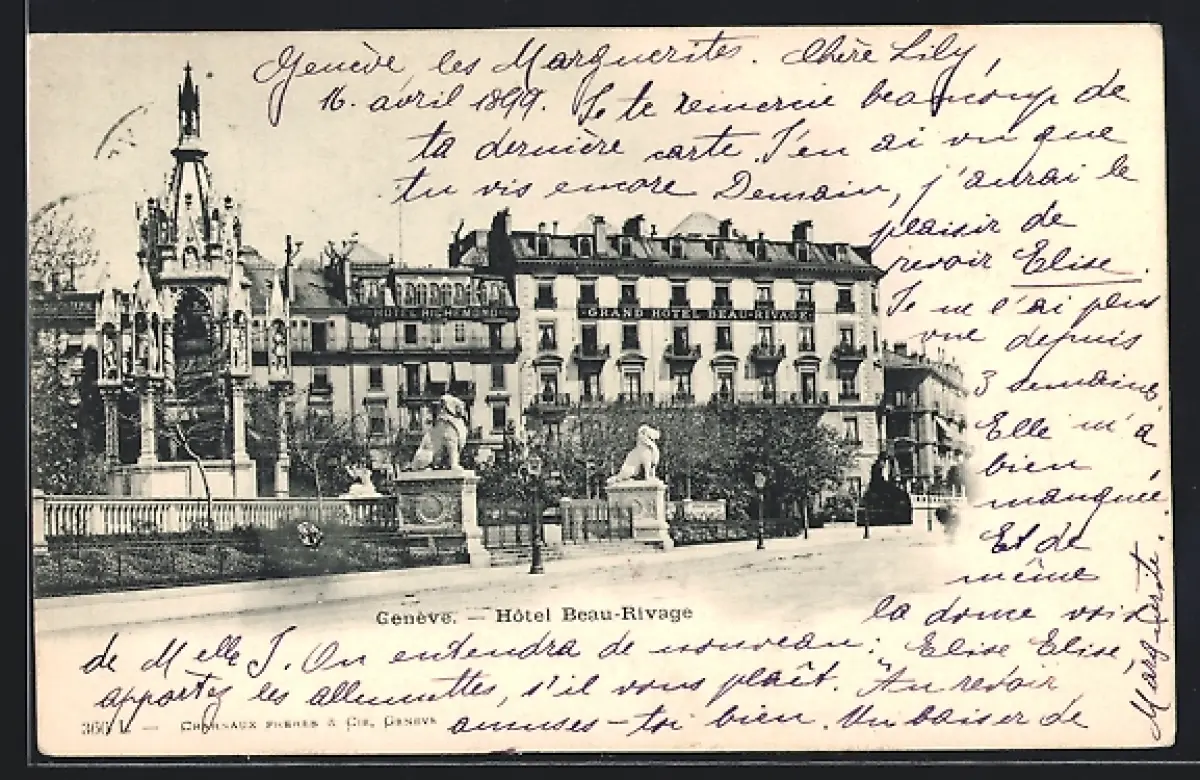 Genève, les Marguerites. Chère Lily,
16. avril 1899. Je te remercie beaucoup de
ta dernière carte. J'en ai vu que
tu vis encore Demain, j'aurai le
plaisir de
revoir Elise.
Je ne l'ai plus
vue depuis
3 semaines
Elle m'a
bien
manquée.
Et de
même
la douce voix
de Melle J. On entendra de nouveau: Elise Elise,
apportez les allumettes, s'il vous plaît. Au revoir,
amuses-toi bien. Un baiser de
Marguerite.
HÔTEL RICHEMOND
GRAND HÔTEL BEAU-RIVAGE
Genève. — Hôtel Beau-Rivage
CHARNAUX FRÈRES & CIE, GENÈVE